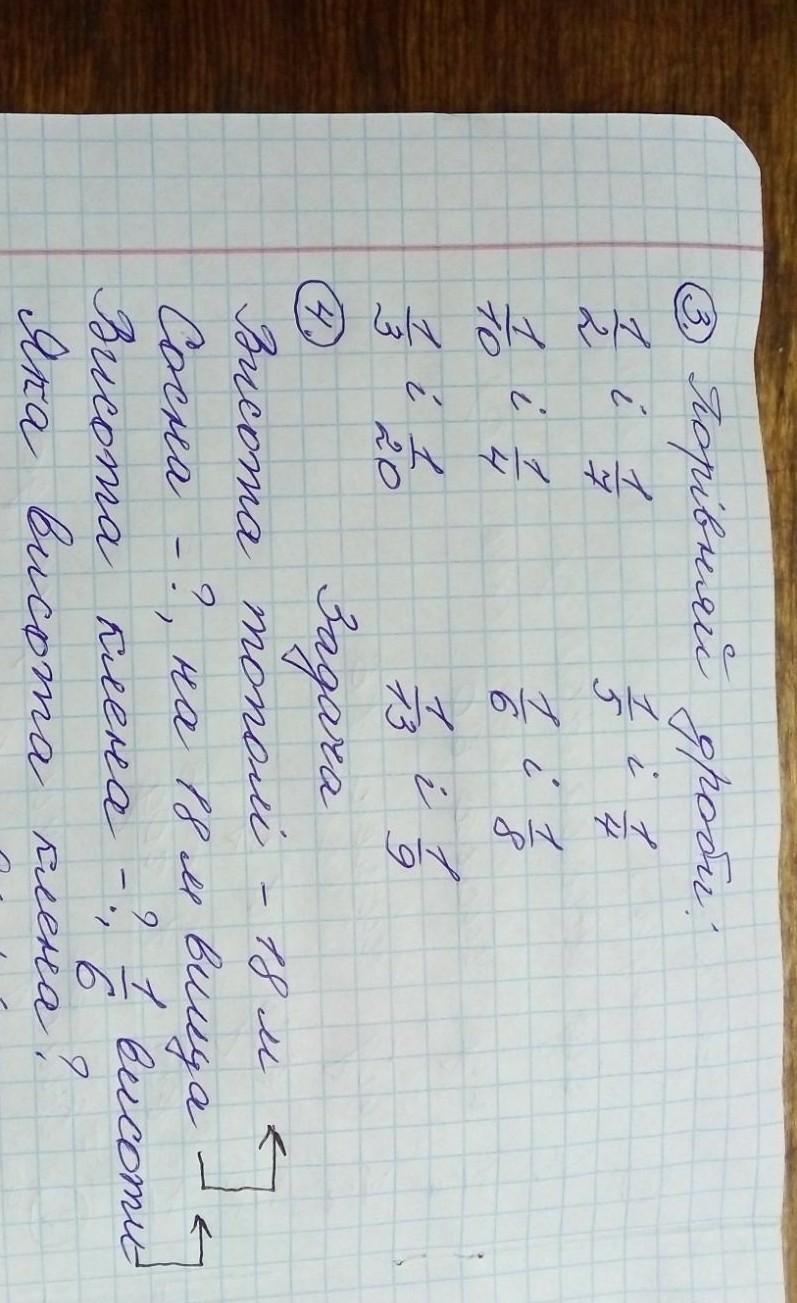 3. Порівняй дроби:
1/2 і 1/7 1/5 і 1/4
1/10 і 1/4 1/6 і 1/8
1/3 і 1/20 1/13 і 1/9
4. Задача
Висота тополі - 18 м
Сосна - ?, на 18 м вища
Висота клена - ?, 1/6 висоти
Яка висота клена?